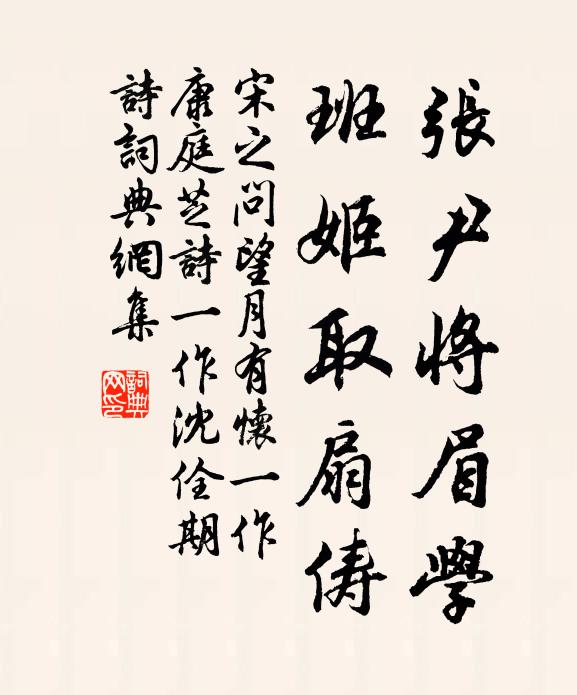 張尹將眉學
班姬取扇儔
宋之問望月有懷一作
康庭芝詩一作沈佺期
詩詞典網集
詞典網印